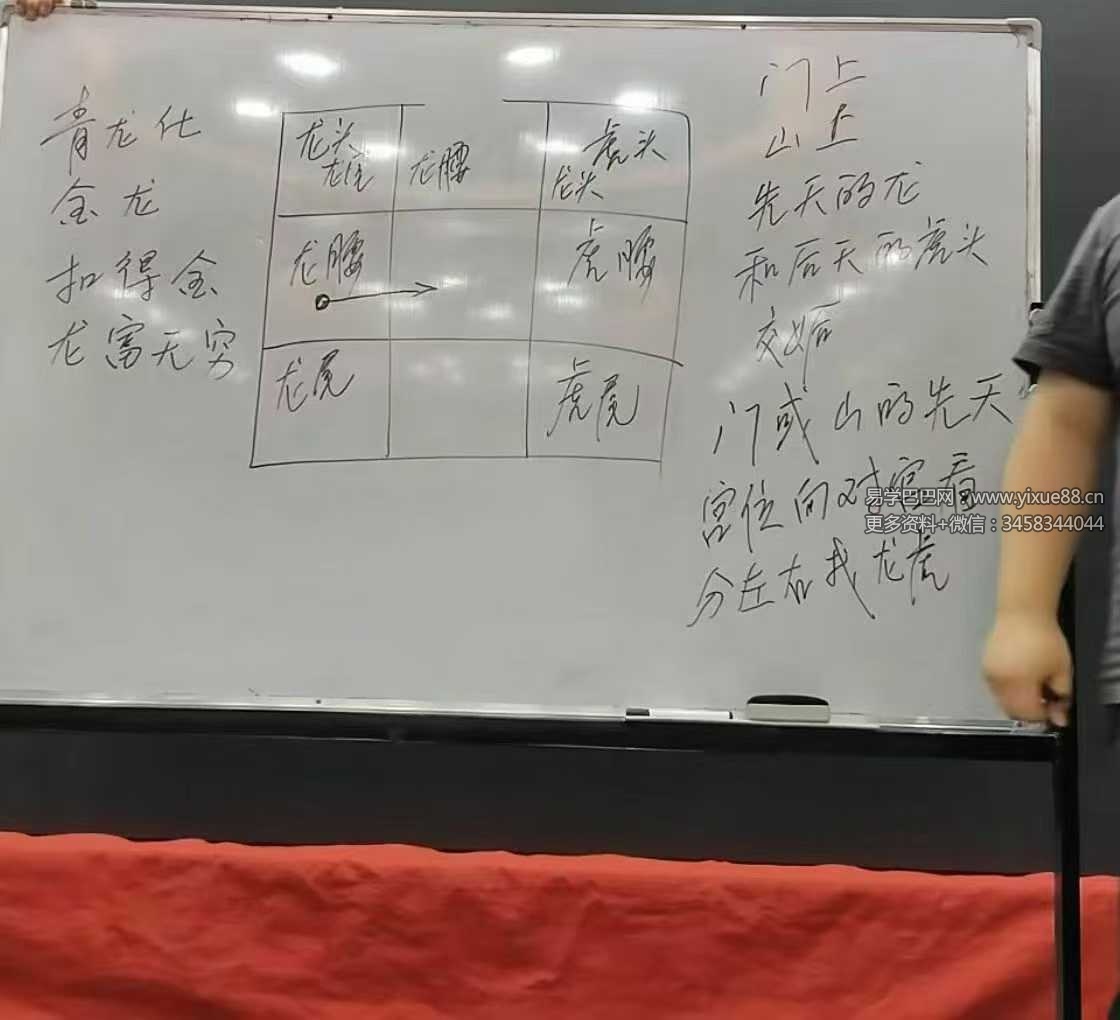 青龙化
金龙
扣得金
龙富无穷
龙头
龙尾
龙腰
虎头
龙头
龙腰
虎腰
龙尾
虎尾
门上
山上
先天的龙
和后天的虎头
交媾
门或山的先天
宫位向对宫看
分左右找龙虎
易学巴巴网：www.yixue88.cn
更多资料+微信：3458344044